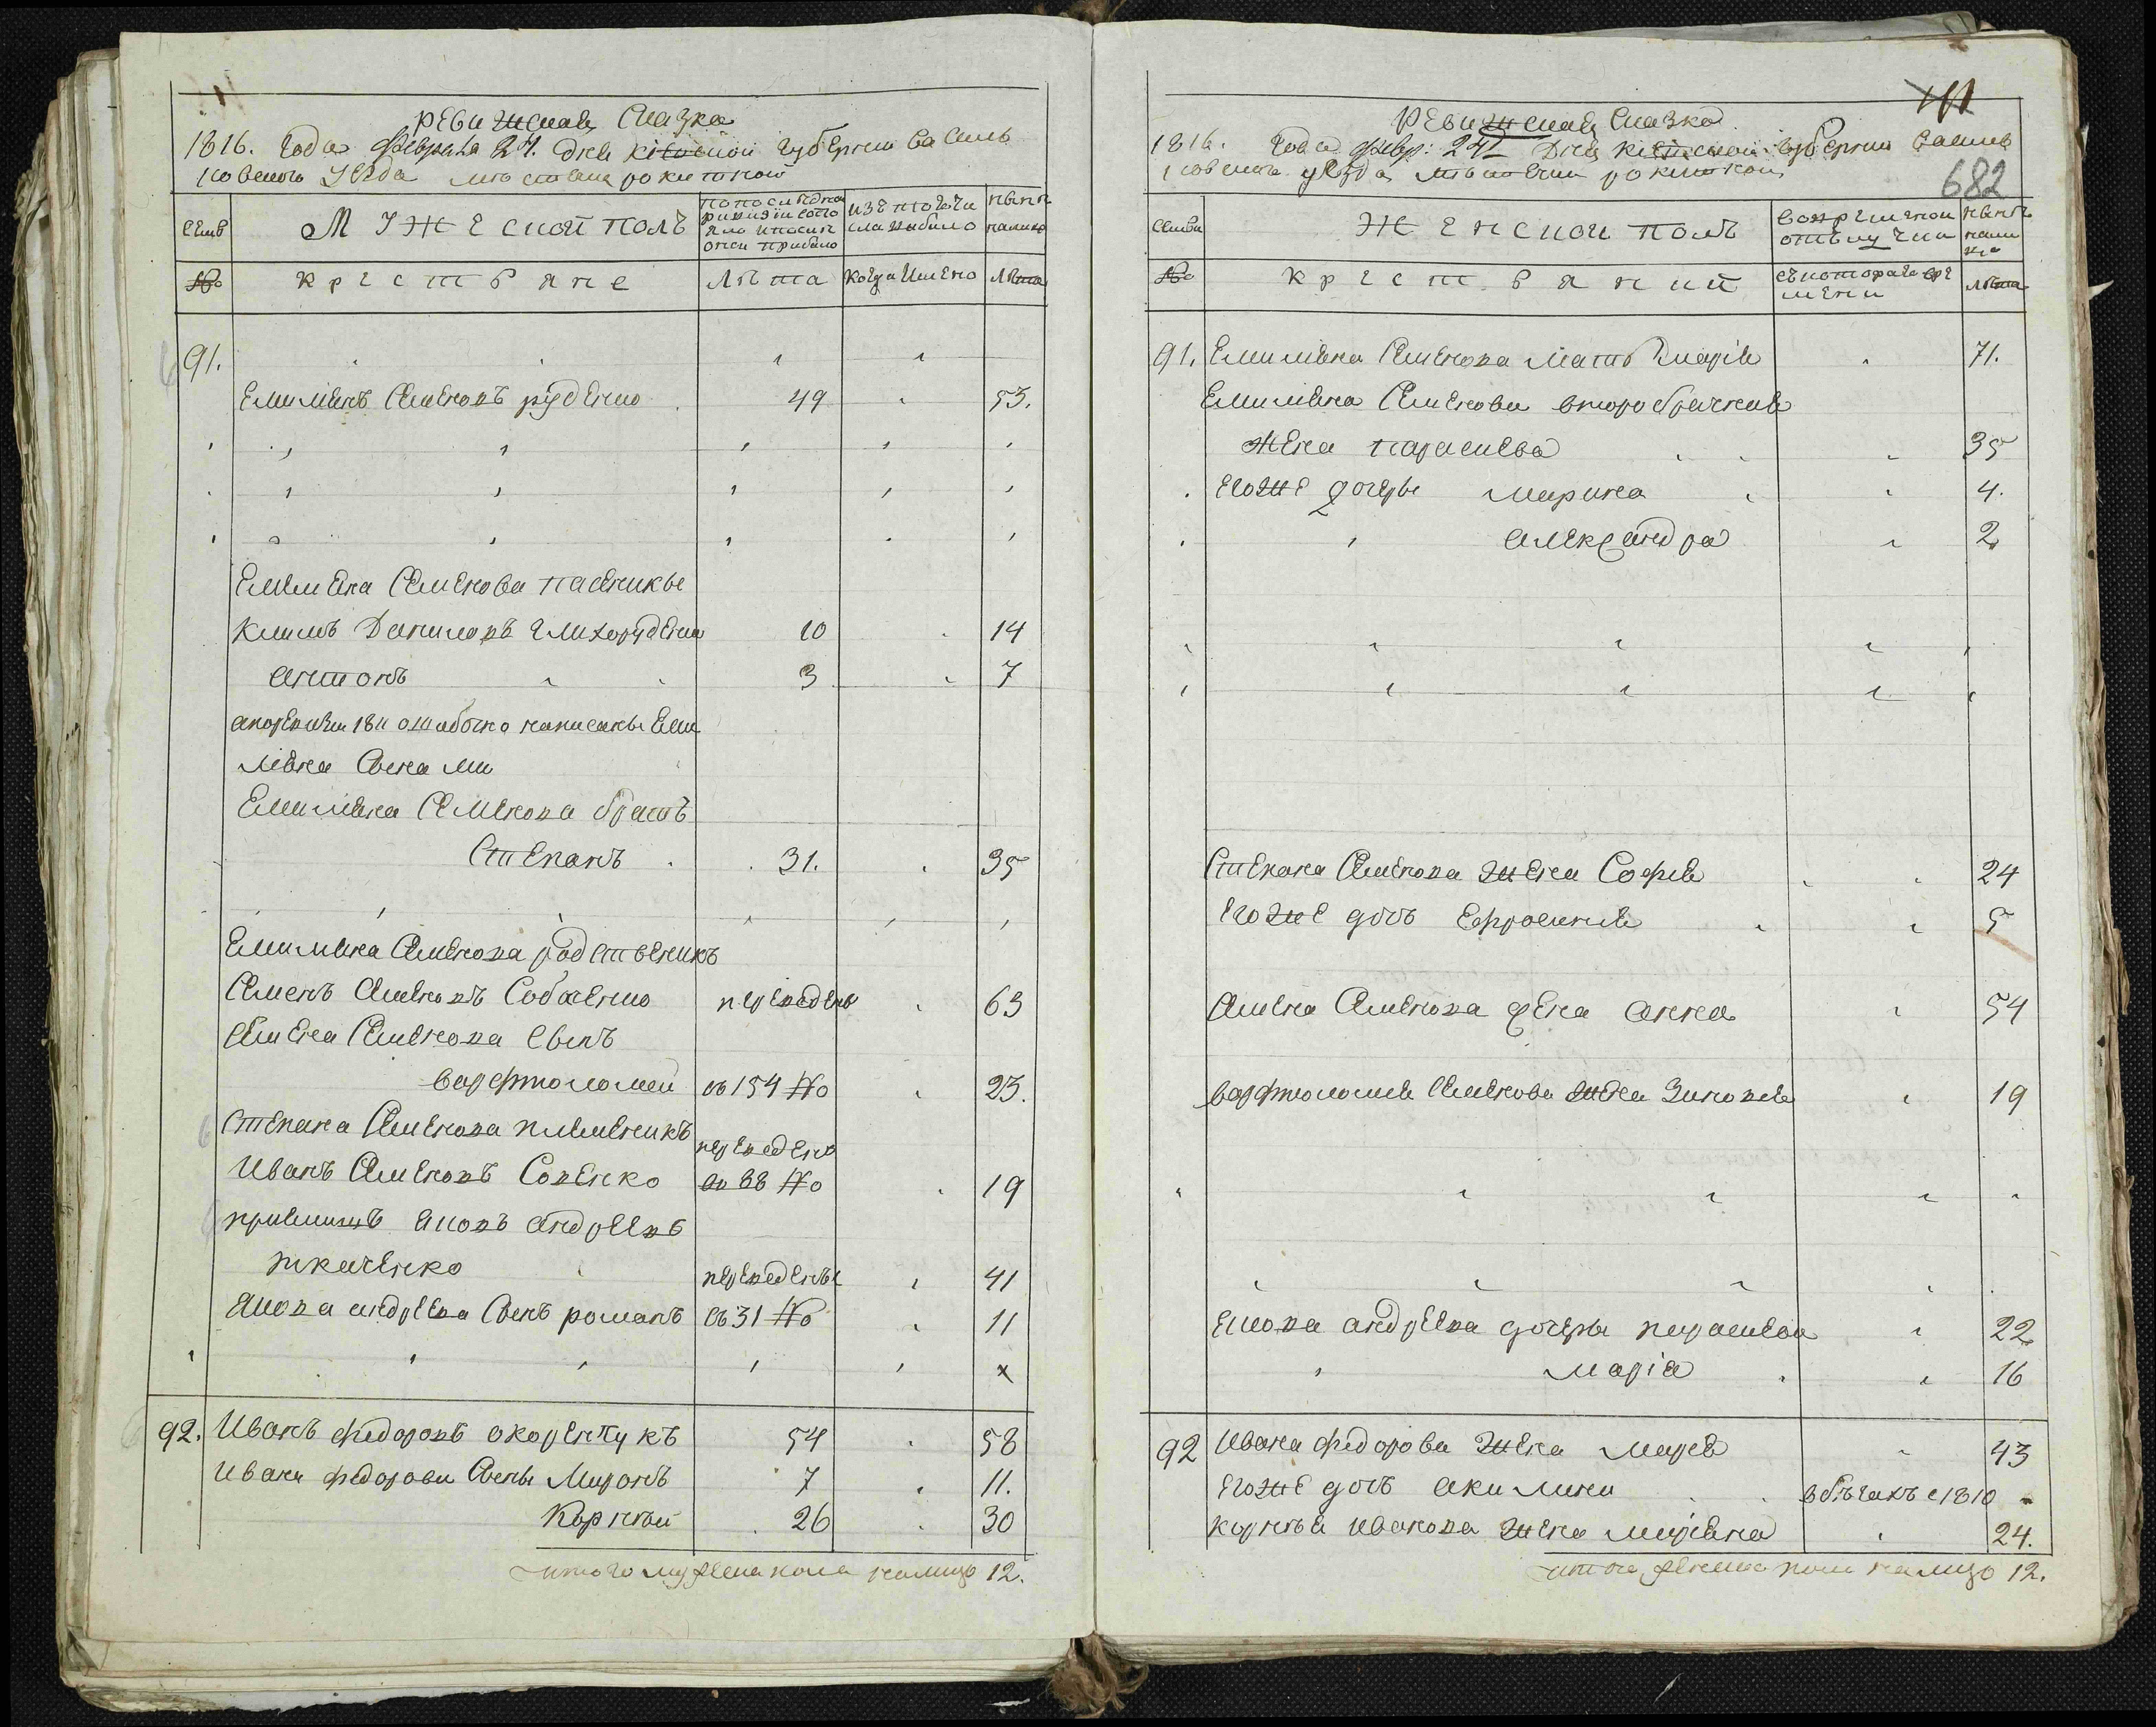 ревижская Сказка
1816. года Февраля 24. дня кіевской губернии Василь
ковского уезда местечка рокитной
семьи
Мужеской полъ
по последней ревизии состояло и после оней прибыло
изъ того числа выбыло
ныне налицо
№
крестьяне
лѣта
когда имено
лѣта
91.
Емилианъ Семеновъ руденко 49 53.
Емилиана Семенова пасеникы
Климъ Даниловъ глихоруденко 10 14
антонъ 3 7
аноревизии 1811 ошибочно написаны Еми
лиана Сынами
Емилиана Семенова братъ
Степанъ 31. 35
Емилиана Семенова родственикъ
Семенъ Семеновъ Собченко переведены 63
Семена Семенова сынъ
варфтоломей съ 154 №о 23.
Степана Семенова племеникъ
переведенъ
Иванъ Семеновъ Сопенко съ 88 №о 19
приемишъ Яковъ андреевъ
ткаченко переведены 41
Якова андреева Сынъ романъ съ 31 №о 11
х
92. Иванъ федоровъ окоренчукъ 54 58
Ивана федорова Сыны Миронъ 7 11.
Корнѣй 26 30
итого мужеска пола налицо 12.
111
ревижская Сказка
1816. года февр: 24 Дня кіевской губернии Василь
ковского уезда местечка рокитной
682
семьи
Женской полъ
вовременной отлучки
ныне нали цо
№
крестьяний
съ котораго вре мени
лѣта
91. Емилиана Семенова Мать Марія 71.
Емилиана Семенова второбрачная
жена параскева 35
Егоже дочеры марина 4.
александра 2
Степана Семенова жена Софія 24
Егоже дочь Ефросинія 5
Семена Семенова жена анна 54
варфтоломея Семенова жена Зиновия 19
Якова андреева дочеры параскева 22
марія 16
92 Ивана федорова жена марія 43
Егоже дочь акилина вбѣгахъ с 1810 -
корнѣя иванова жена мариана 24.
итого женска пола налицо 12.